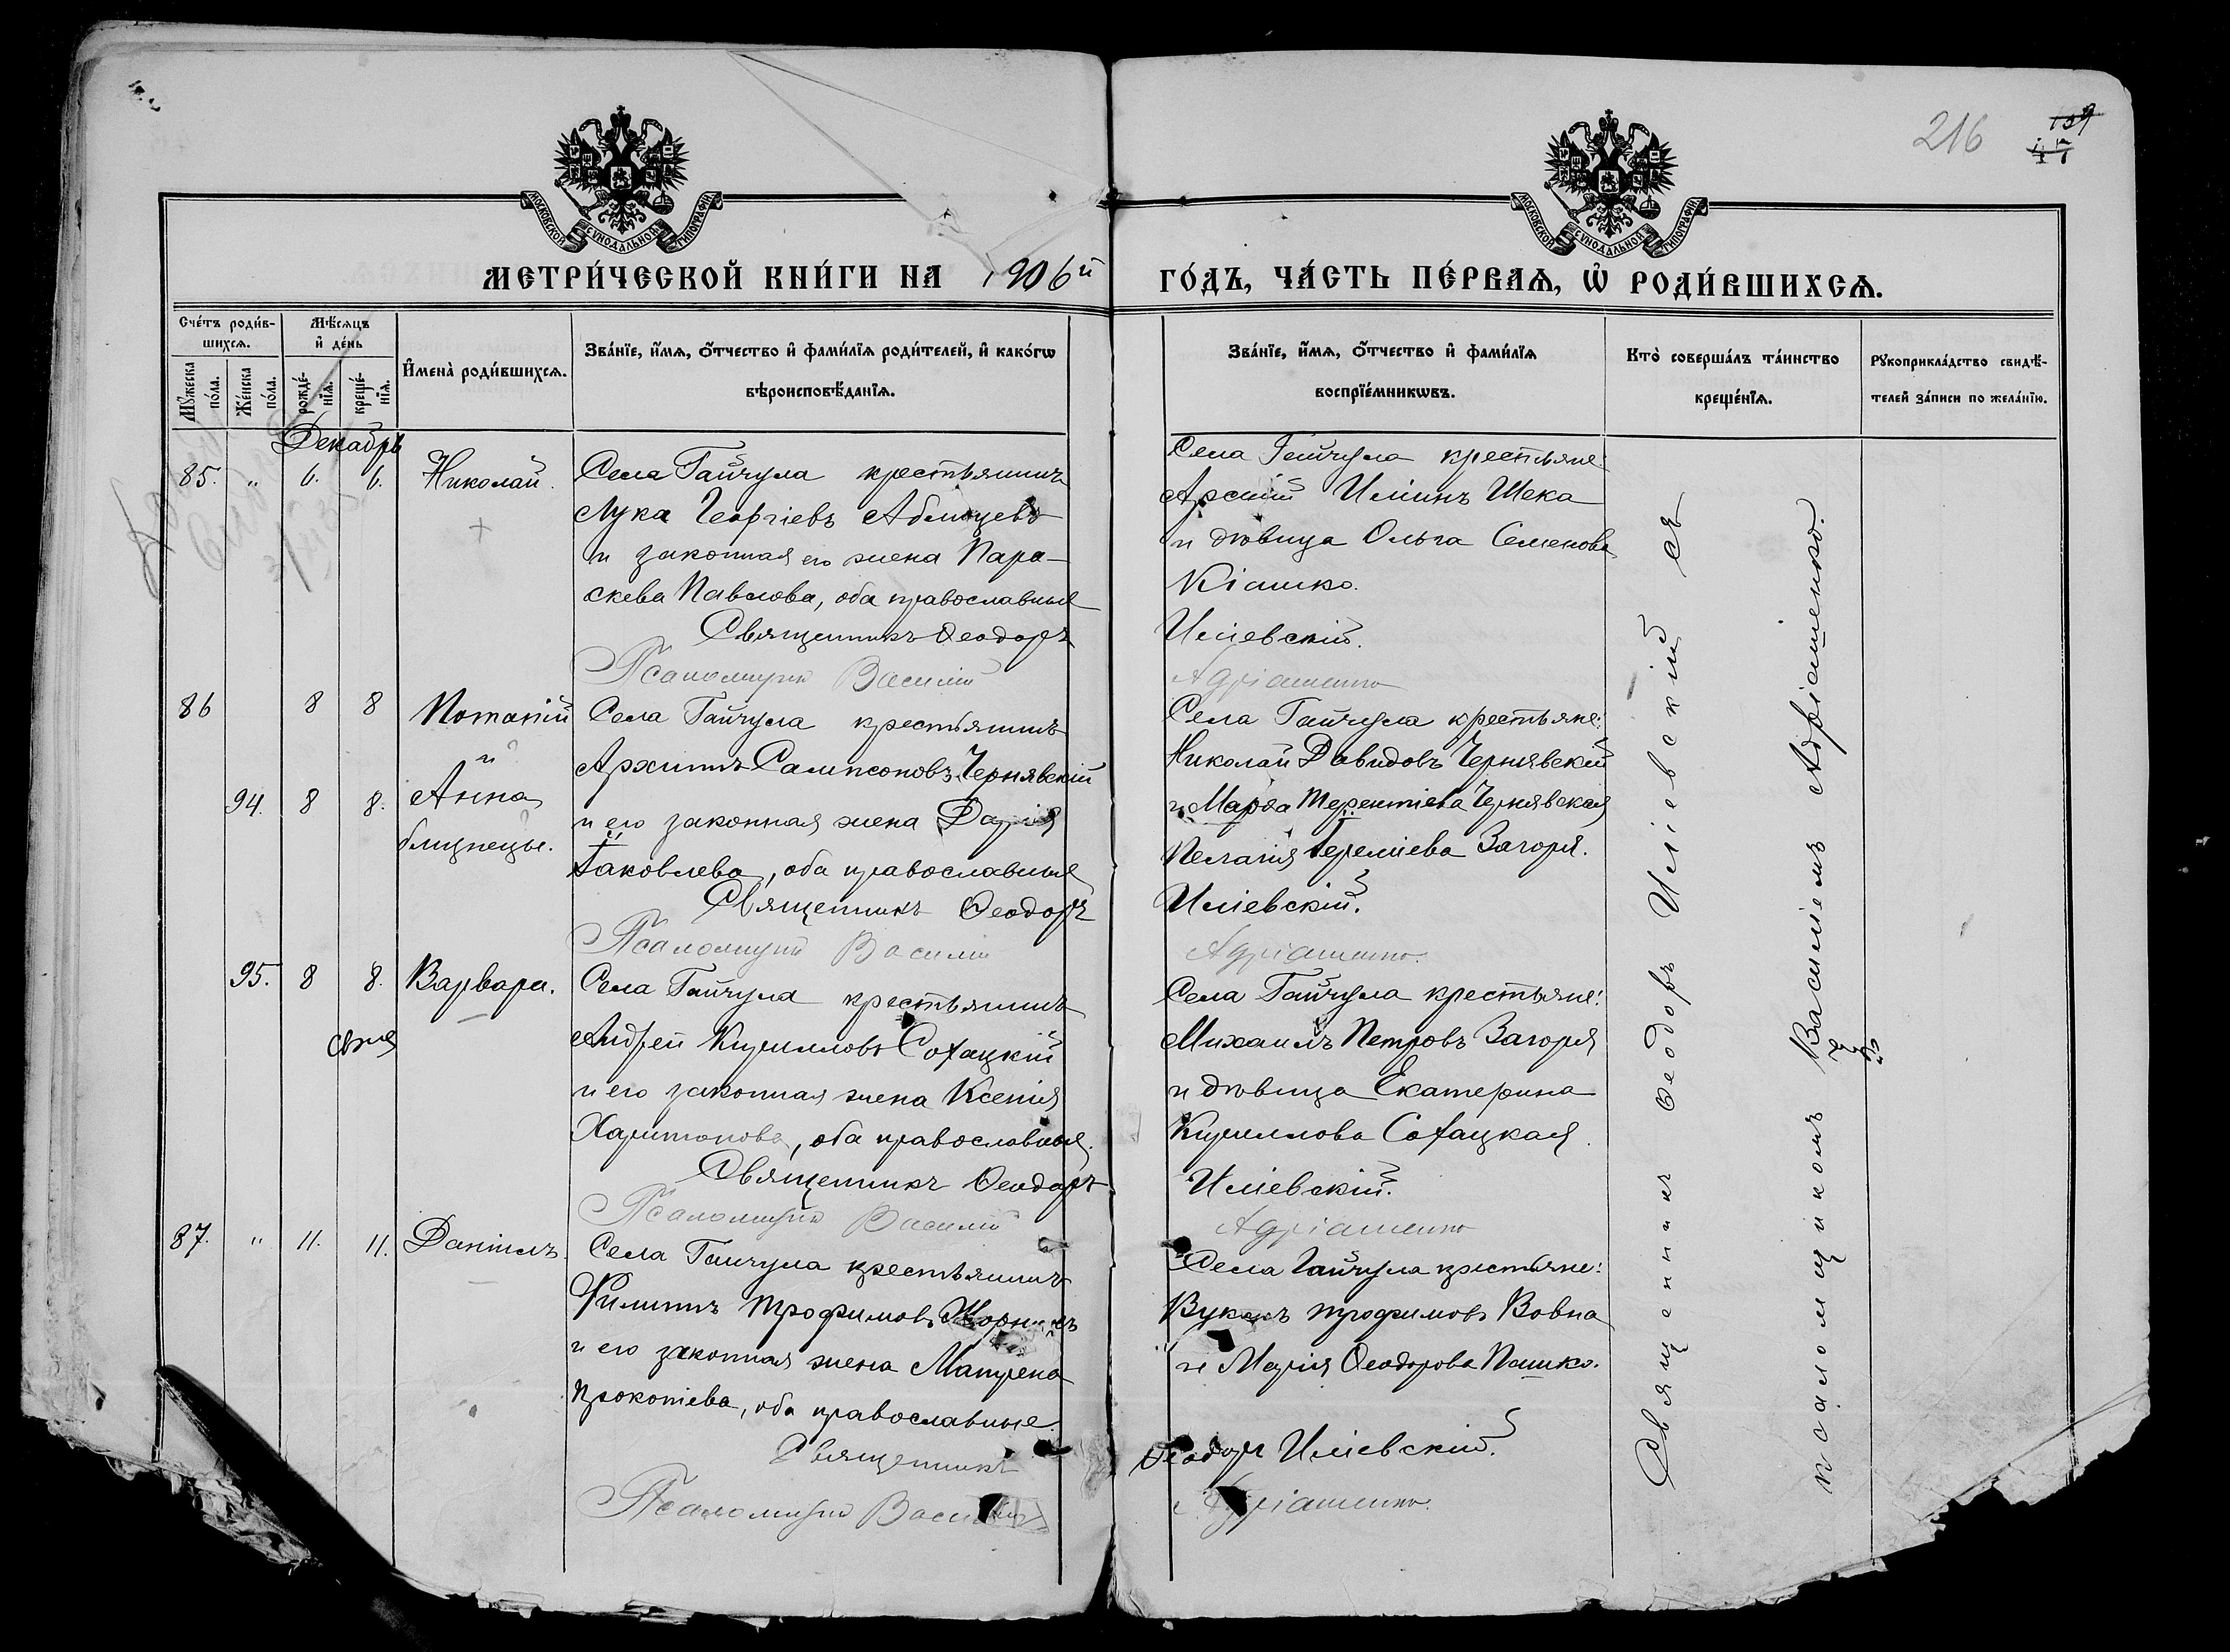 216
109
47
МОСКОВСКОЙ СУНОДАЛЬНОЙ ТИПОГРАФІИ
МОСКОВСКОЙ СУНОДАЛЬНОЙ ТИПОГРАФІИ
МЕТРИ́ЧЕСКОЙ КНИ́ГИ НА 1906й ГО́ДЪ, ЧА́СТЬ ПЕ́РВАѦ, Ѡ҆ РОДИ́ВШИХСѦ.
Сче́тъ роди́в-
шихсѧ.
Мꙋжеска по́ла.
Же́нска по́ла.
Мѣ́сѧцъ
и҆ де́нь
рожде́-
нїѧ.
креще́-
нїѧ.
И҆мена̀ роди́вшихсѧ.
Зва́нїе, и҆́мѧ, ѻ҆́тчество и҆ фами́лїѧ роди́телей, и҆ како́гѡ
вѣроисповѣ́данїѧ.
Зва́нїе, и҆́мѧ, ѻ҆́тчество и҆ фами́лїѧ
воспрїе́мникѡвъ.
Кто̀ соверша́лъ та́инство
креще́нїѧ.
Рꙋкоприкла́дство свидѣ́-
телей за́писи по жела́нїю.
Декабрь
85. " 6. 6. Николай.
Села Гайчула крестьянинъ
Лука Георгіевъ
и законная его жена Пара-
скева Павлова, оба православные
Священникъ Ѳеодоръ
Псаломщикъ Василій
Села Гайчула крестьяне:
Арсеній Шека
и дѣвица Ольга Семенова
Кіашко.
Иліевскій.
Адріашенко
86 8 8 Потапій
и
94. 8 8. Анна
близнецы.
Села Гайчула крестьянинъ
Архипъ Сампсоновъ Чернявскій
и его законная жена Дарія
Іаковлева, оба православные
Священникъ Ѳеодоръ
Псаломщикъ Василій
Села Гайчула крестьяне:
Николай Давидовъ Чернявскій
и Марѳа Терентіева Чернявская
Пелагія Іереміева Загоря.
Иліевскій.
Адріашенко.
95. 8 8. Варвара.
Села Гайчула крестьянинъ
Андрей Кирилловъ Сохацкій
и его законная жена Ксенія
Харитонова, оба православные.
Священникъ Ѳеодоръ
Псаломщикъ Василій
Села Гайчула крестьяне:
Михаилъ Петровъ Загоря
и дѣвица Екатерина
Кириллова Сохацкая.
Иліевскій.
Адріашенко
87. " 11. 11. Даніилъ.
Села Гайчула крестьянинъ
Филиппъ Трофимовъ
и его законная жена Матрена
Прокопіева, оба православные.
Священникъ
Псаломщикъ Василій
Села Гайчула крестьяне:
Вуколъ Трофимовъ Вовна
и Марія Ѳеодорова Пашко.
Ѳеодоръ Иліевскій.
Адріашенко.
Священникъ Ѳеодоръ Иліевскій съ
псаломщикомъ Василіемъ Адріашенко.